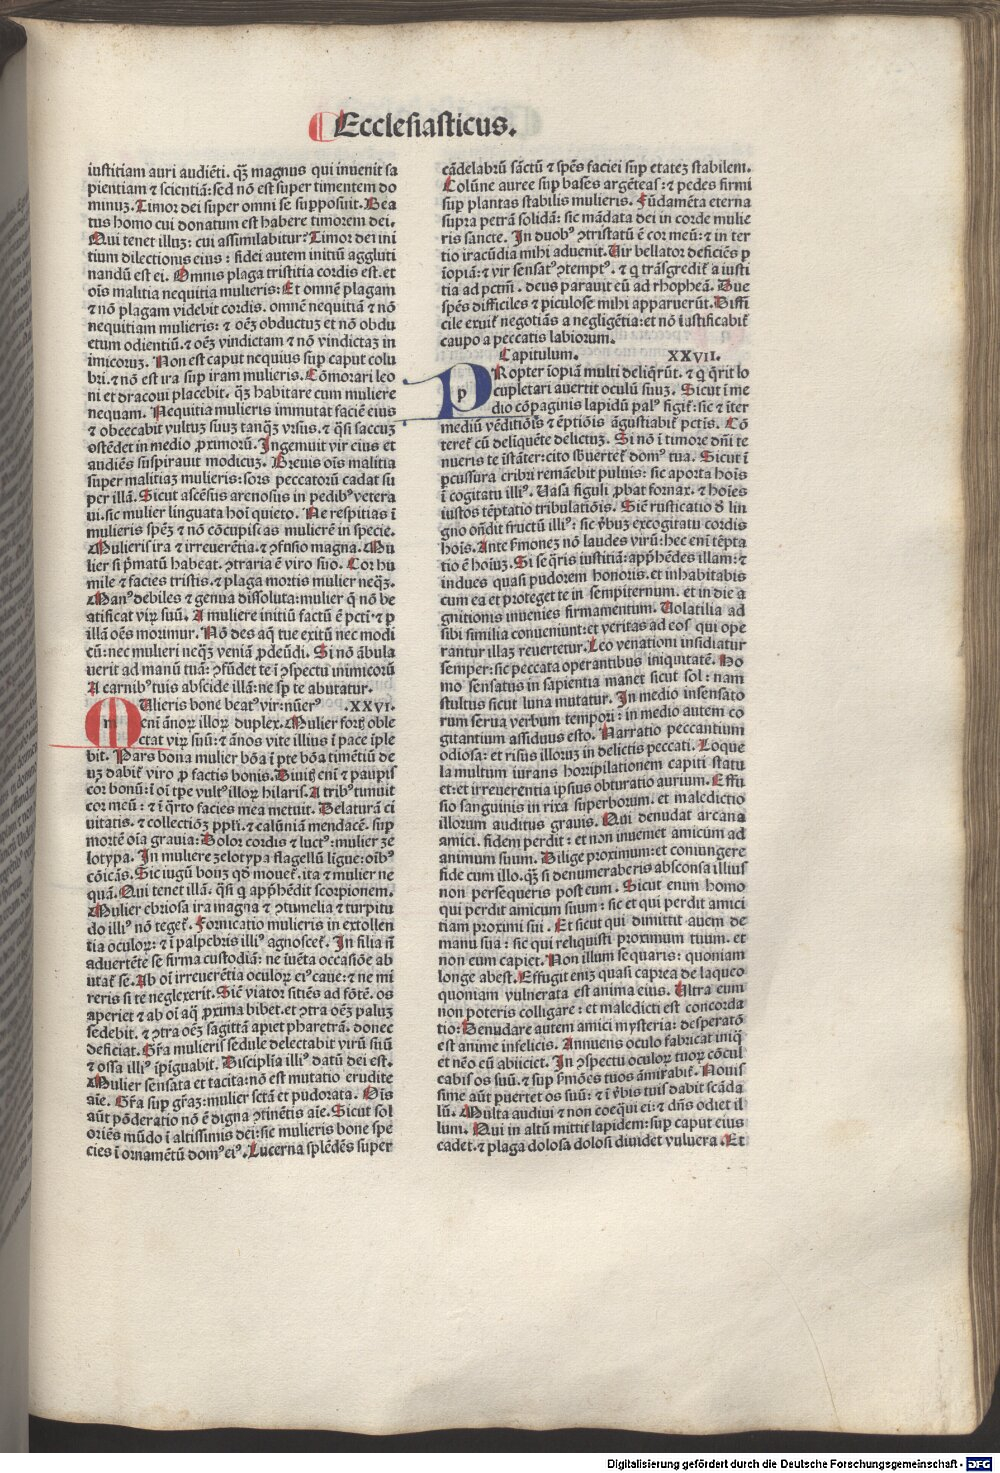 Ecclesiasticus.
iustitiam auri audiēti. q̄ꝫ magnus qui invenit sa
pientiam ⁊ scientiā: sed nō est super timentem do
minuꝫ. Timor dei super omni se supposuit. Bea
tus homo cui donatum est habere timorem dei.
Qui tenet illuꝫ: cui assimilabitur? Timor dei ini
tium dilectionis eius: fidei autem initiū aggluti
nandū est ei. Omnis plaga tristitia cordis est. et
oīs malitia nequitia mulieris: Et omnē plagam
⁊ nō plagam videbit cordis. omnē nequitiā ⁊ nō
nequitiam mulieris: ⁊ oēꝫ obductuꝫ et nō obdu
ctum odientiū. ⁊ oēꝫ vindictam ⁊ nō vindictaꝫ in
imicoruꝫ. Non est caput nequius suꝑ caput colu
bri. ⁊ nō est ira suꝑ iram mulieris. Cōmorari leo
ni et draconi placebit. q̄ꝫ habitare cum muliere
nequam. Nequitia mulieris immutat faciē eius
⁊ obcecabit vultuꝫ suuꝫ tanqꝫ vrsus. ⁊ q̄si saccuꝫ
ostēdet in medio ꝓximorū. Ingemuit vir eius et
audiēs suspiravit modicuꝫ. Brevis oīs malitia
super malitiaꝫ mulieris: sors peccatorū cadat su
per illā. Sicut ascēsus arenosus in pedibꝰ vetera
ni. sic mulier linguata hoī quieto. Ne respitias ī
mulieris spēꝫ ⁊ nō cōcupiscas mulierē in specie.
Mulieris ira ⁊ irreverētia. ⁊ ꝯfusio magna. Mu
lier si pͥmatū habeat. ꝯtraria ē viro suo. Cor hu
mile ⁊ facies tristis. ⁊ plaga mortis mulier neqꝫ.
Manꝰ debiles ⁊ genua dissoluta: mulier q̄ nō be
atificat viꝝ suū. A muliere initiū factū ē pctī. ⁊ ꝑ
illā oēs morimur. Nō des aq̄ tue exitū nec modi
cū: nec mulieri neqꝫ veniā ꝓdeūdi. Si nō ābula
uerit ad manū tuā: ꝯfūdet te ī ꝯspectu inimicorū
A carnibꝰ tuis abscide illā: ne sꝑ te abutatur.
Mulieris bone beatꝰ vir: nūerꝰ .XXVI.
enī ānoꝝ illoꝝ duplex. Mulier fortꝭ oble
ctat viꝝ suū: ⁊ ānos vite illius ī pace īple
bit. Pars bona mulier bōa ī ꝑte bōa timētiū de
uꝫ dabitᷣ viro ꝓ factis bonis. Divitꝭ enī ⁊ paupis
cor bonū: ī oī tꝑe vultꝰ illoꝝ hilaris. A tribꝰ timuit
cor meū: ⁊ ī q̄rto facies mea metuit. Delaturā ci
vitatis. ⁊ collectioꝫ ppli. ⁊ calūniā mendacē. suꝑ
mortē oīa gravia: Dolor cordis ⁊ luctꝰ: mulier ze
lotypa. In muliere zelotypa flagellū ligue: oībꝰ
cōicās. Sic iugū bouꝫ qd̄ mouetᷣ. ita ⁊ mulier ne
quā. Qui tenet illā. q̄si q̄ apꝑhēdit scorpionem.
Mulier ebriosa ira magna ⁊ ꝯtumelia ⁊ turpitu
do illiꝰ nō tegetᷣ. Fornicatio mulieris in extollen
tia oculoꝝ: ⁊ ī palpebris illiꝰ agnoscetᷣ. In filia nō
advertēte se firma custodiā: ne īvēta occasiōe ab
utatᷣ se. Ab oī irreverētia oculoꝝ eiꝰ cave: ⁊ ne mi
reris si te neglexerit. Sicᷓ viator sitiēs ad fōtē. os
aperiet ⁊ ab oī aq̄ ꝓxima bibet. et ꝯtra oēꝫ paluꝫ
sedebit. ⁊ ꝯtra oēꝫ sagittā aꝑiet pharetrā. donec
deficiat. Grā mulieris sedule delectabit virū suū
⁊ ossa illiꝰ īpīguabit. Disciplīa illiꝰ datū dei est.
Mulier sensata et tacita: nō est mutatio erudite
aīe. Grā suꝑ grāꝫ: mulier sctā et pudorata. Oīs
aūt pōderatio nō ē digna ꝯtinētis aīe. Sicut sol
oriēs mūdo ī altissimis dei: sic mulieris bone spe
cies ī ornamētū domꝰ eiꝰ. Lucerna splēdēs super
cādelabrū sāctū ⁊ spēs faciei suꝑ etateꝫ stabilem.
Colūne auree suꝑ bases argēteas: ⁊ pedes firmi
suꝑ plantas stabilis mulieris. Fūdamēta eterna
supra petrā solidā: sic mādata dei in corde mulie
ris sancte. In duobꝰ ꝯtristatū ē cor meū: ⁊ in ter
tio iracūdia mihi advenit. Vir bellator deficiēs ꝑ
īopiā: ⁊ vir sensatꝰ ꝯtemptꝰ. ⁊ q̄ trāsgreditᷣ a iusti
tia ad pctm̄. deus paravit eū ad rhopheā. Due
spēs difficiles ⁊ piculose mihi apparuerūt. Diffi
cile exuitᷣ negotiās a negligētia: et nō īustificabitᷣ
caupo a peccatis labiorum.
Capitulum. XXVII.
PRopter īopiā multi deliq̄rūt. ⁊ q̄ q̄rit lo
cupletari avertit oculū suuꝫ. Sicut ī me
dio cōpaginis lapidū palꝰ figitᷣ: sic ⁊ īter
mediū vēditiōis ⁊ ēptiōis āgustiabitᷣ pctis. Cō
teretᷣ cū deliquēte delictuꝫ. Si nō ī timore dn̄i te
nueris te īstāter: cito sb̄vertetᷣ domꝰ tua. Sicut ī
ꝑcussura cribri remānebit pulvis: sic aporta hoīs
ī cogitatu illiꝰ. Vasa figuli ꝓbat fornax. ⁊ hoīes
iustos tēptatio tribulatiōis. Sicᷓ rusticatio d̄ lin
gno on̄dit fructū illiꝰ: sic v̄buꝫ excogitatu cordis
hoīs. Ante sͬmoneꝫ nō laudes virū: hec enī tēpta
tio ē hoīuꝫ. Si seq̄ris iustitiā: apꝑhēdes illam: ⁊
indues quasi pudorem honoris. et inhabitabis
cum ea et proteget te in sempiternum. et in die a
gnitionis invenies firmamentum. Volatilia ad
sibi similia conveniunt: et veritas ad eos qui ope
rantur illaꝫ revertetur. Leo venationi insidiatur
semper: sic peccata operantibus iniquitatē. Ho
mo sensatus in sapientia manet sicut sol: nam
stultus sicut luna mutatur. In medio insensato
rum serua verbum tempori: in medio autem co
gitantium assiduus esto. Narratio peccantium
odiosa: et risus illoruꝫ in delictis peccati. Loque
la multum iurans horripilationem capiti statu
et: et irreverentia ipsius obturatio aurium. Effu
sio sanguinis in rixa superborum. et maledictio
illorum auditus gravis. Qui denudat arcana
amici. fidem perdit: et non inveniet amicum ad
animum suum. Dilige proximum: et coniungere
fide cum illo. q̄ꝫ si denumeraberis absconsa illius
non persequeris post eum. Sicut enim homo
qui perdit amicum suum: sic et qui perdit amici
tiam proximi sui. Et sicut qui dimittit avem de
manu sua: sic qui reliquisti proximum tuum. et
non eum capiet. Non illum sequaris: quoniam
longe abest. Effugit eniꝫ quasi caprea de laqueo
quoniam vulnerata est anima eius. Ultra eum
non poteris colligare: et maledicti est concorda
tio: Denudare autem amici mysteria: desperatō
est anime infelicis. Annuens oculo fabricat iniq̄
et nēo eū abiiciet. In ꝯspectu oculoꝝ tuoꝝ cōcul
cabis os suū. ⁊ suꝑ sͬmōes tuos āmirabitᷣ. Novis
sime aūt ꝑvertet os suū: ⁊ ī v̄bis tuis dabit scāda
lū. Multa audivi ⁊ non coeqvi ei: ⁊ dn̄s odiet il
lum. Qui in altū mittit lapidem: suꝑ caput eius
cadet. ⁊ plaga dolosa dolosi dividet vulnera. Et
Digitalisierung gefördert durch die Deutsche Forschungsgemeinschaft - DFG